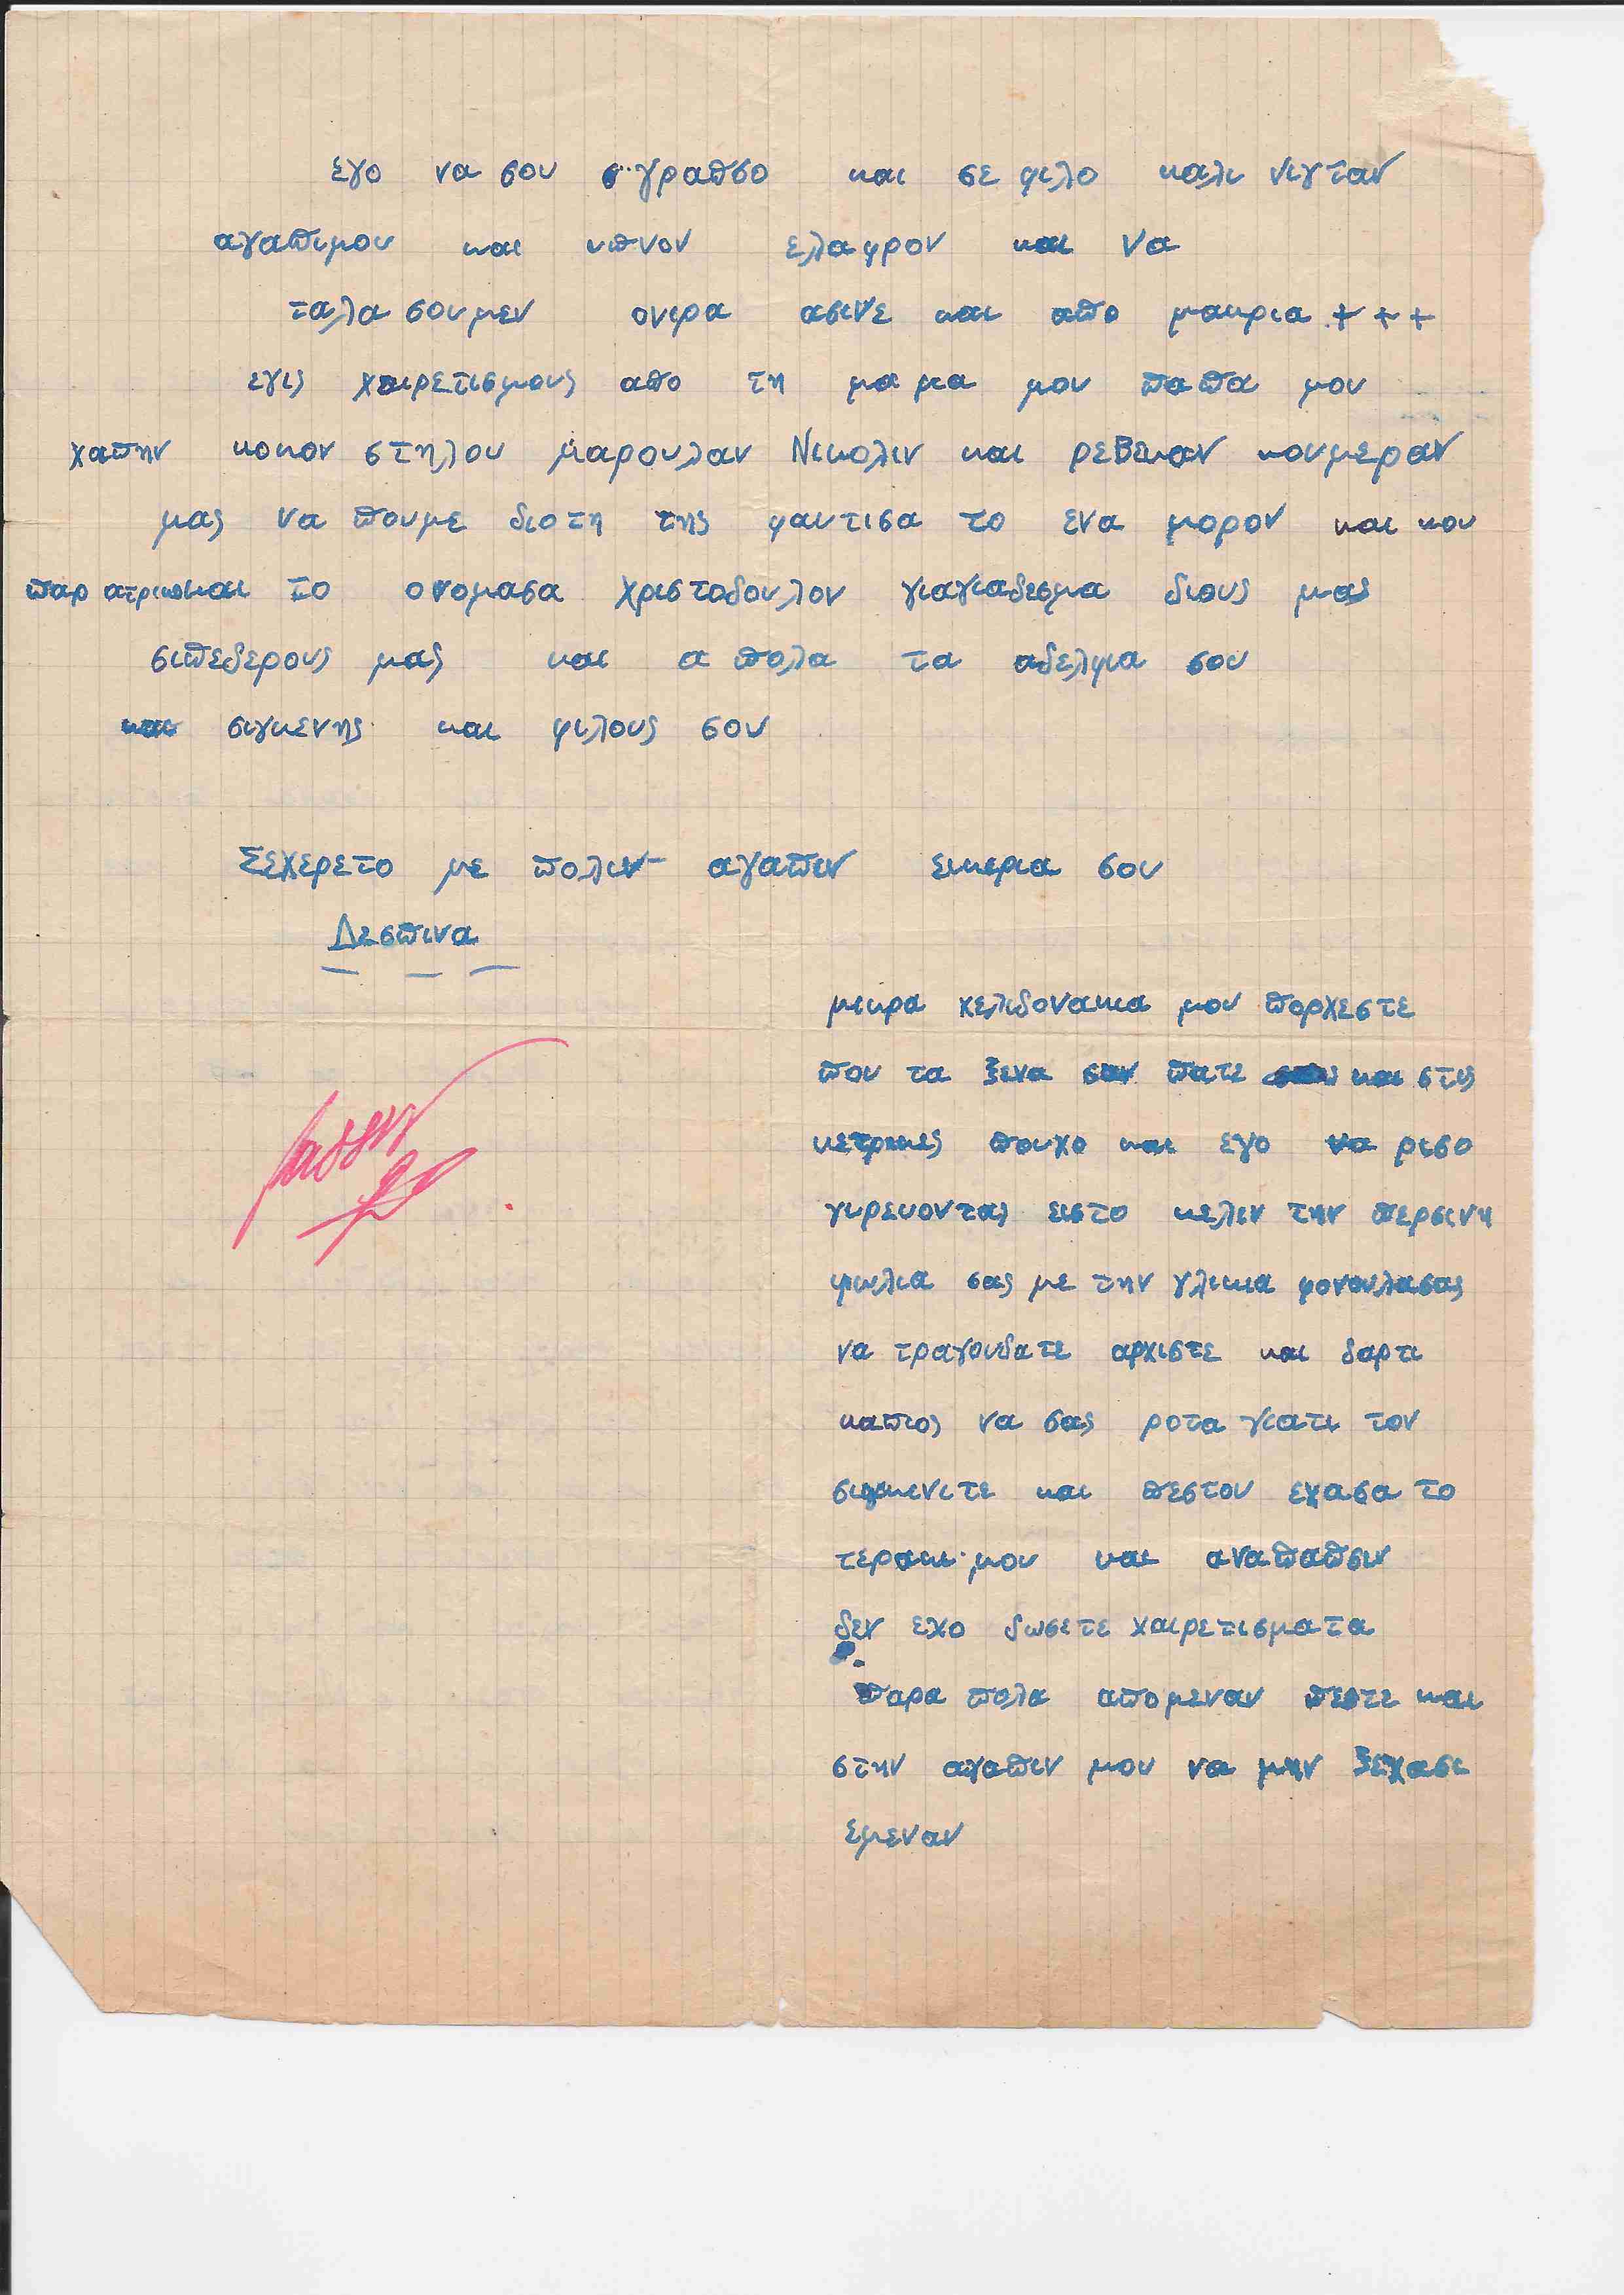 εγο να σου γραπσο και σε φιλο καλι νιχταν
αγαπιμου και υπνον ελαφρον και να
ταλα σουμεν ονιρα ασινε και απο μακρια + + +
εχις χαιρετισμους απο τη μαμα μου παπα μου
χαπην κοκον στηλου μαρουλαν Νικολιν και ρεΒεκαν κουμεραν
μας να πουμε διοτη της φαυτισα το ενα μορον και κου
παρ το ονομασα χριστοδουλον γιαγιαδεσμα διους μας
σιπεδερους μας και α πολα τα αδελφια σου
και σιγκενης και φιλους σου
Σεχερετο με πολιν αγαπιν εικερια σου
Δεσπινα
μικρα χελιδονακια μου πορχεστε
που τα ξενα σαν πατε και στις
πουχο και εγο να ρισο
γυρευοντας ειστο κελιν την περσινη
φωλια σας με την γλικια φονουλασας
να τραγουδατε αρχιστε και δαρτι
καπιος να σας ροτα γιατι τον
σιγκινιτε και πεστον εχασα το
τερακι μου και αναπαπσιν
δεν εχο δωσετε χαιρετισματα
παρα πολα απομεναν πεστε και
στην αγαπιν μου να μην ξεχασι
εμεναν